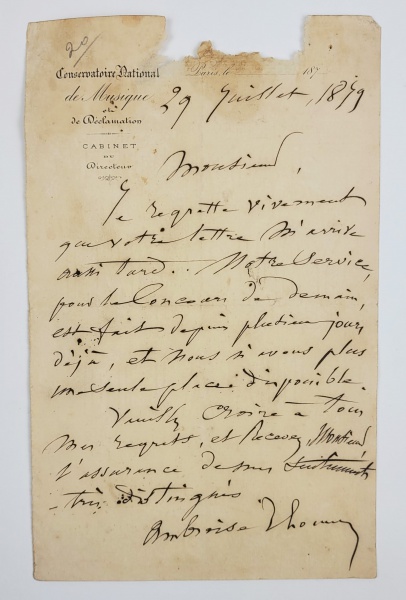 20
Conservatoire National
de Musique
et
de Déclamation
CABINET
DU
Directeur
Paris, le 187
29 Juillet, 1879
Monsieur,
Je regrette vivement
que votre lettre m'arrive
aussi tard.. Notre service,
pour le Concours de demain,
est fait depuis plusieurs jours
déjà, et nous n'avons plus
une seule place disponible.
Veuillez croire à tous
mes regrets, et recevez, Monsieur
l'assurance de mes sentiments
très distingués
Ambroise Thomas